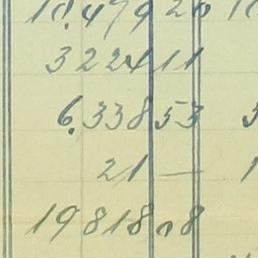 10.479 20
3 224 11
6.338 53
21 —
19 818 08